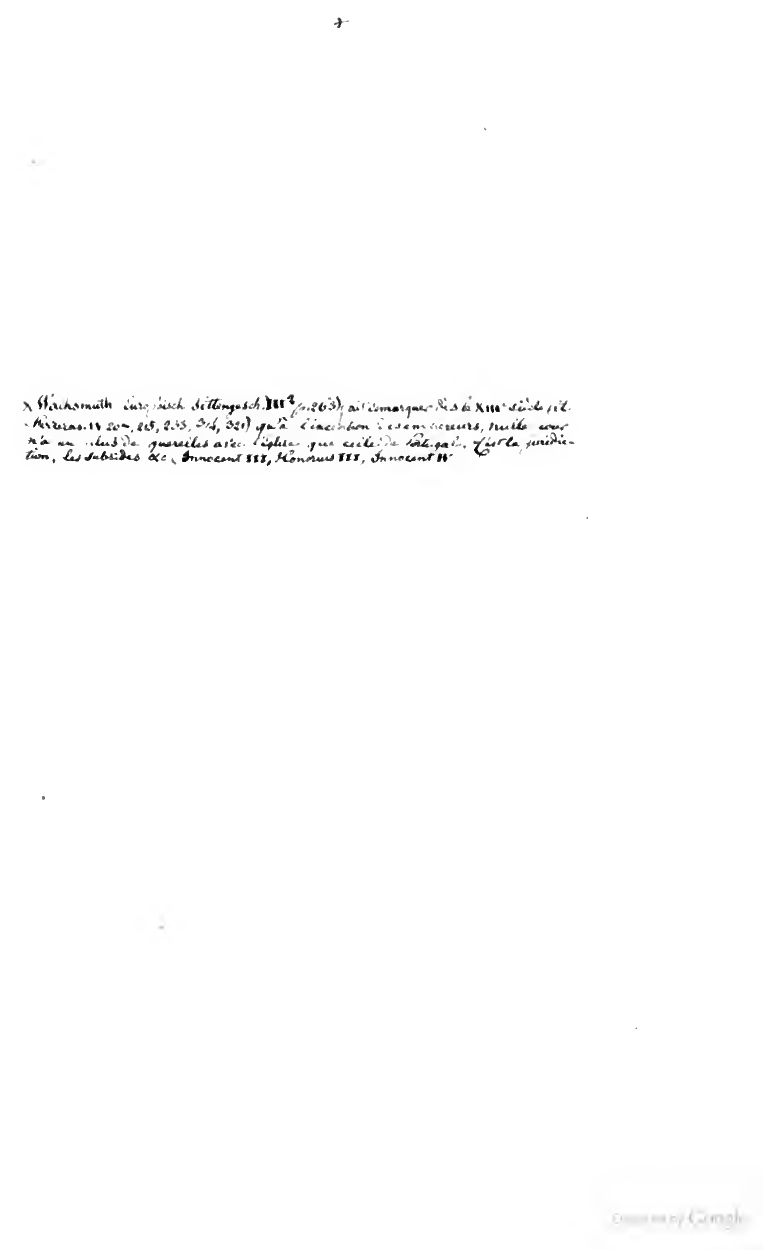 x Wachsmuth Europäisch Sittengesch. III² (p. 263) fait remarquer dès le XIIIe siècle (cit.
Ferreras. IV 204, 215, 233, 314, 321) qu'à l'exception des empereurs, nulle cour
n'a eu plus de querelles avec l'église que celle de Portugal. C'est la juridic-
tion, les subsides &c. Innocent III, Honorius III, Innocent IV
Google